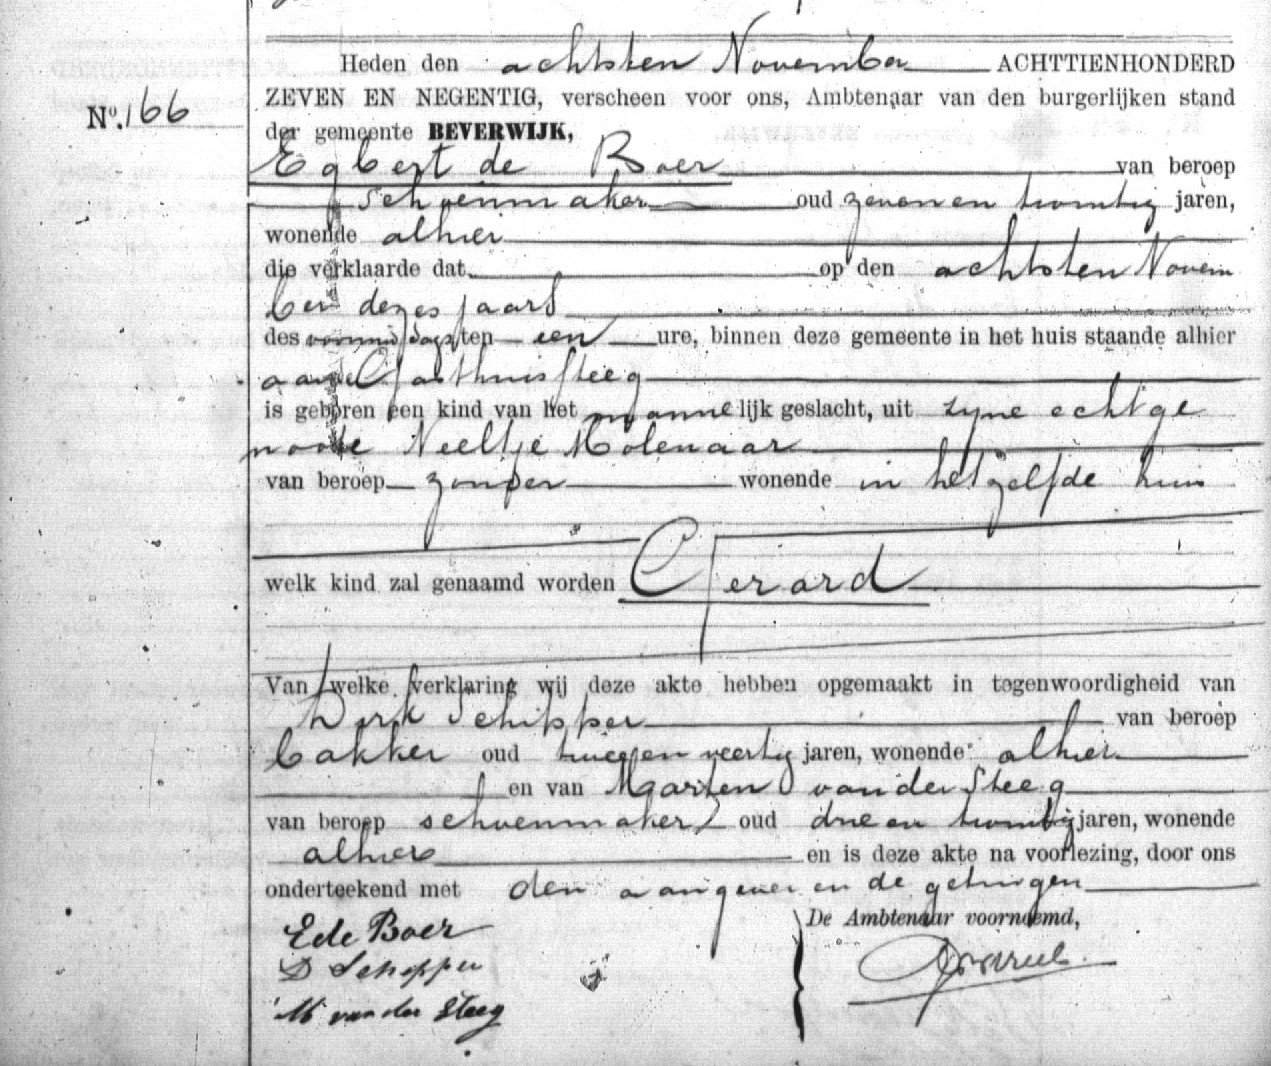 Heden den achtsten November ACHTTIENHONDERD
ZEVEN EN NEGENTIG, verscheen voor ons, Ambtenaar van den burgerlijken stand
No. 166
der gemeente BEVERWIJK,
Egbert de Boer van beroep
schoenmaker oud zeven en twintig jaren,
wonende alhier
die verklaarde dat op den achtsten Novem
ber dezes jaars
des voormiddags ten een ure, binnen deze gemeente in het huis staande alhier
aande Gasthuissteeg
is geboren een kind van het mannelijk geslacht, uit zyne echtge
noote Neeltje Molenaar
van beroep zonder wonende in hetzelfde huis
welk kind zal genaamd worden Gerard
Van welke verklaring wij deze akte hebben opgemaakt in tegenwoordigheid van
Dirk Schipper van beroep
bakker oud tweeen veertig jaren, wonende alhier
en van Marten van der Steeg
van beroep schoenmaker oud drie en twintig jaren, wonende
alhier en is deze akte na voorlezing, door ons
onderteekend met den aangever en de getuigen
De Ambtenaar voornoemd,
E de Boer
D Schipper
M van der Steeg